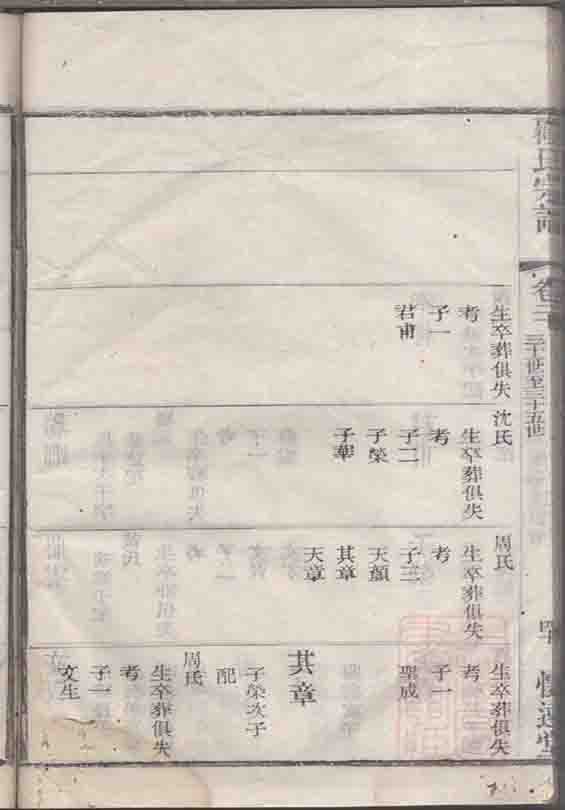 氏宗譜
卷二
三十世至三十五世
生卒葬俱失
考
子一
君甫
沈氏
生卒葬俱失
考
子二
子榮
子華
周氏
生卒葬俱失
考
子三
天顏
其章
天章
生卒葬俱失
考
子一
聖成
其章
子榮次子
配
周氏
生卒葬俱失
考
子一
文生